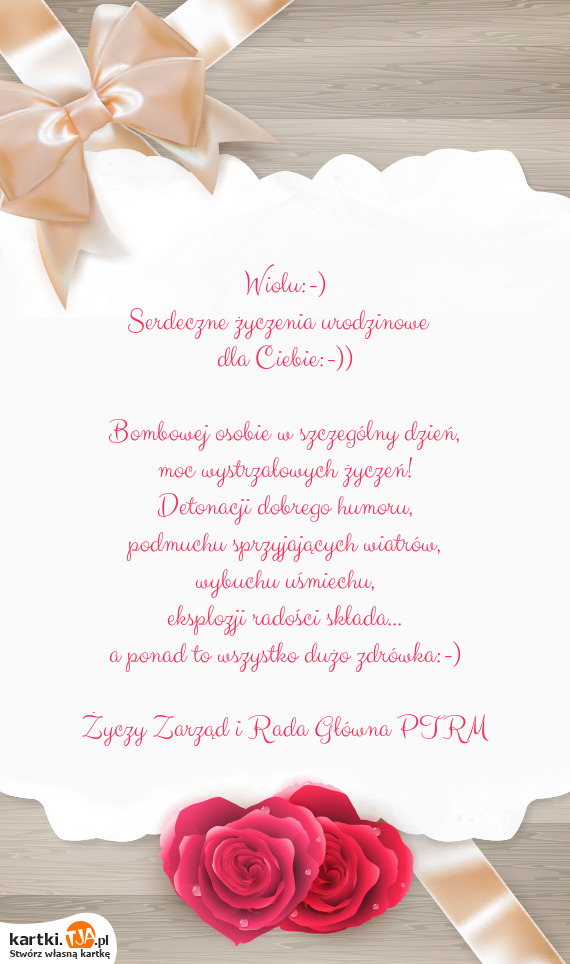 Wiolu:-)
Serdeczne życzenia urodzinowe
dla Ciebie:-))
Bombowej osobie w szczególny dzień,
moc wystrzałowych życzeń!
Detonacji dobrego humoru,
podmuchu sprzyjających wiatrów,
wybuchu uśmiechu,
eksplozji radości składa...
a ponad to wszystko dużo zdrówka:-)
Życzy Zarząd i Rada Główna PTRM
kartki.TJA.pl
Stwórz własną kartkę